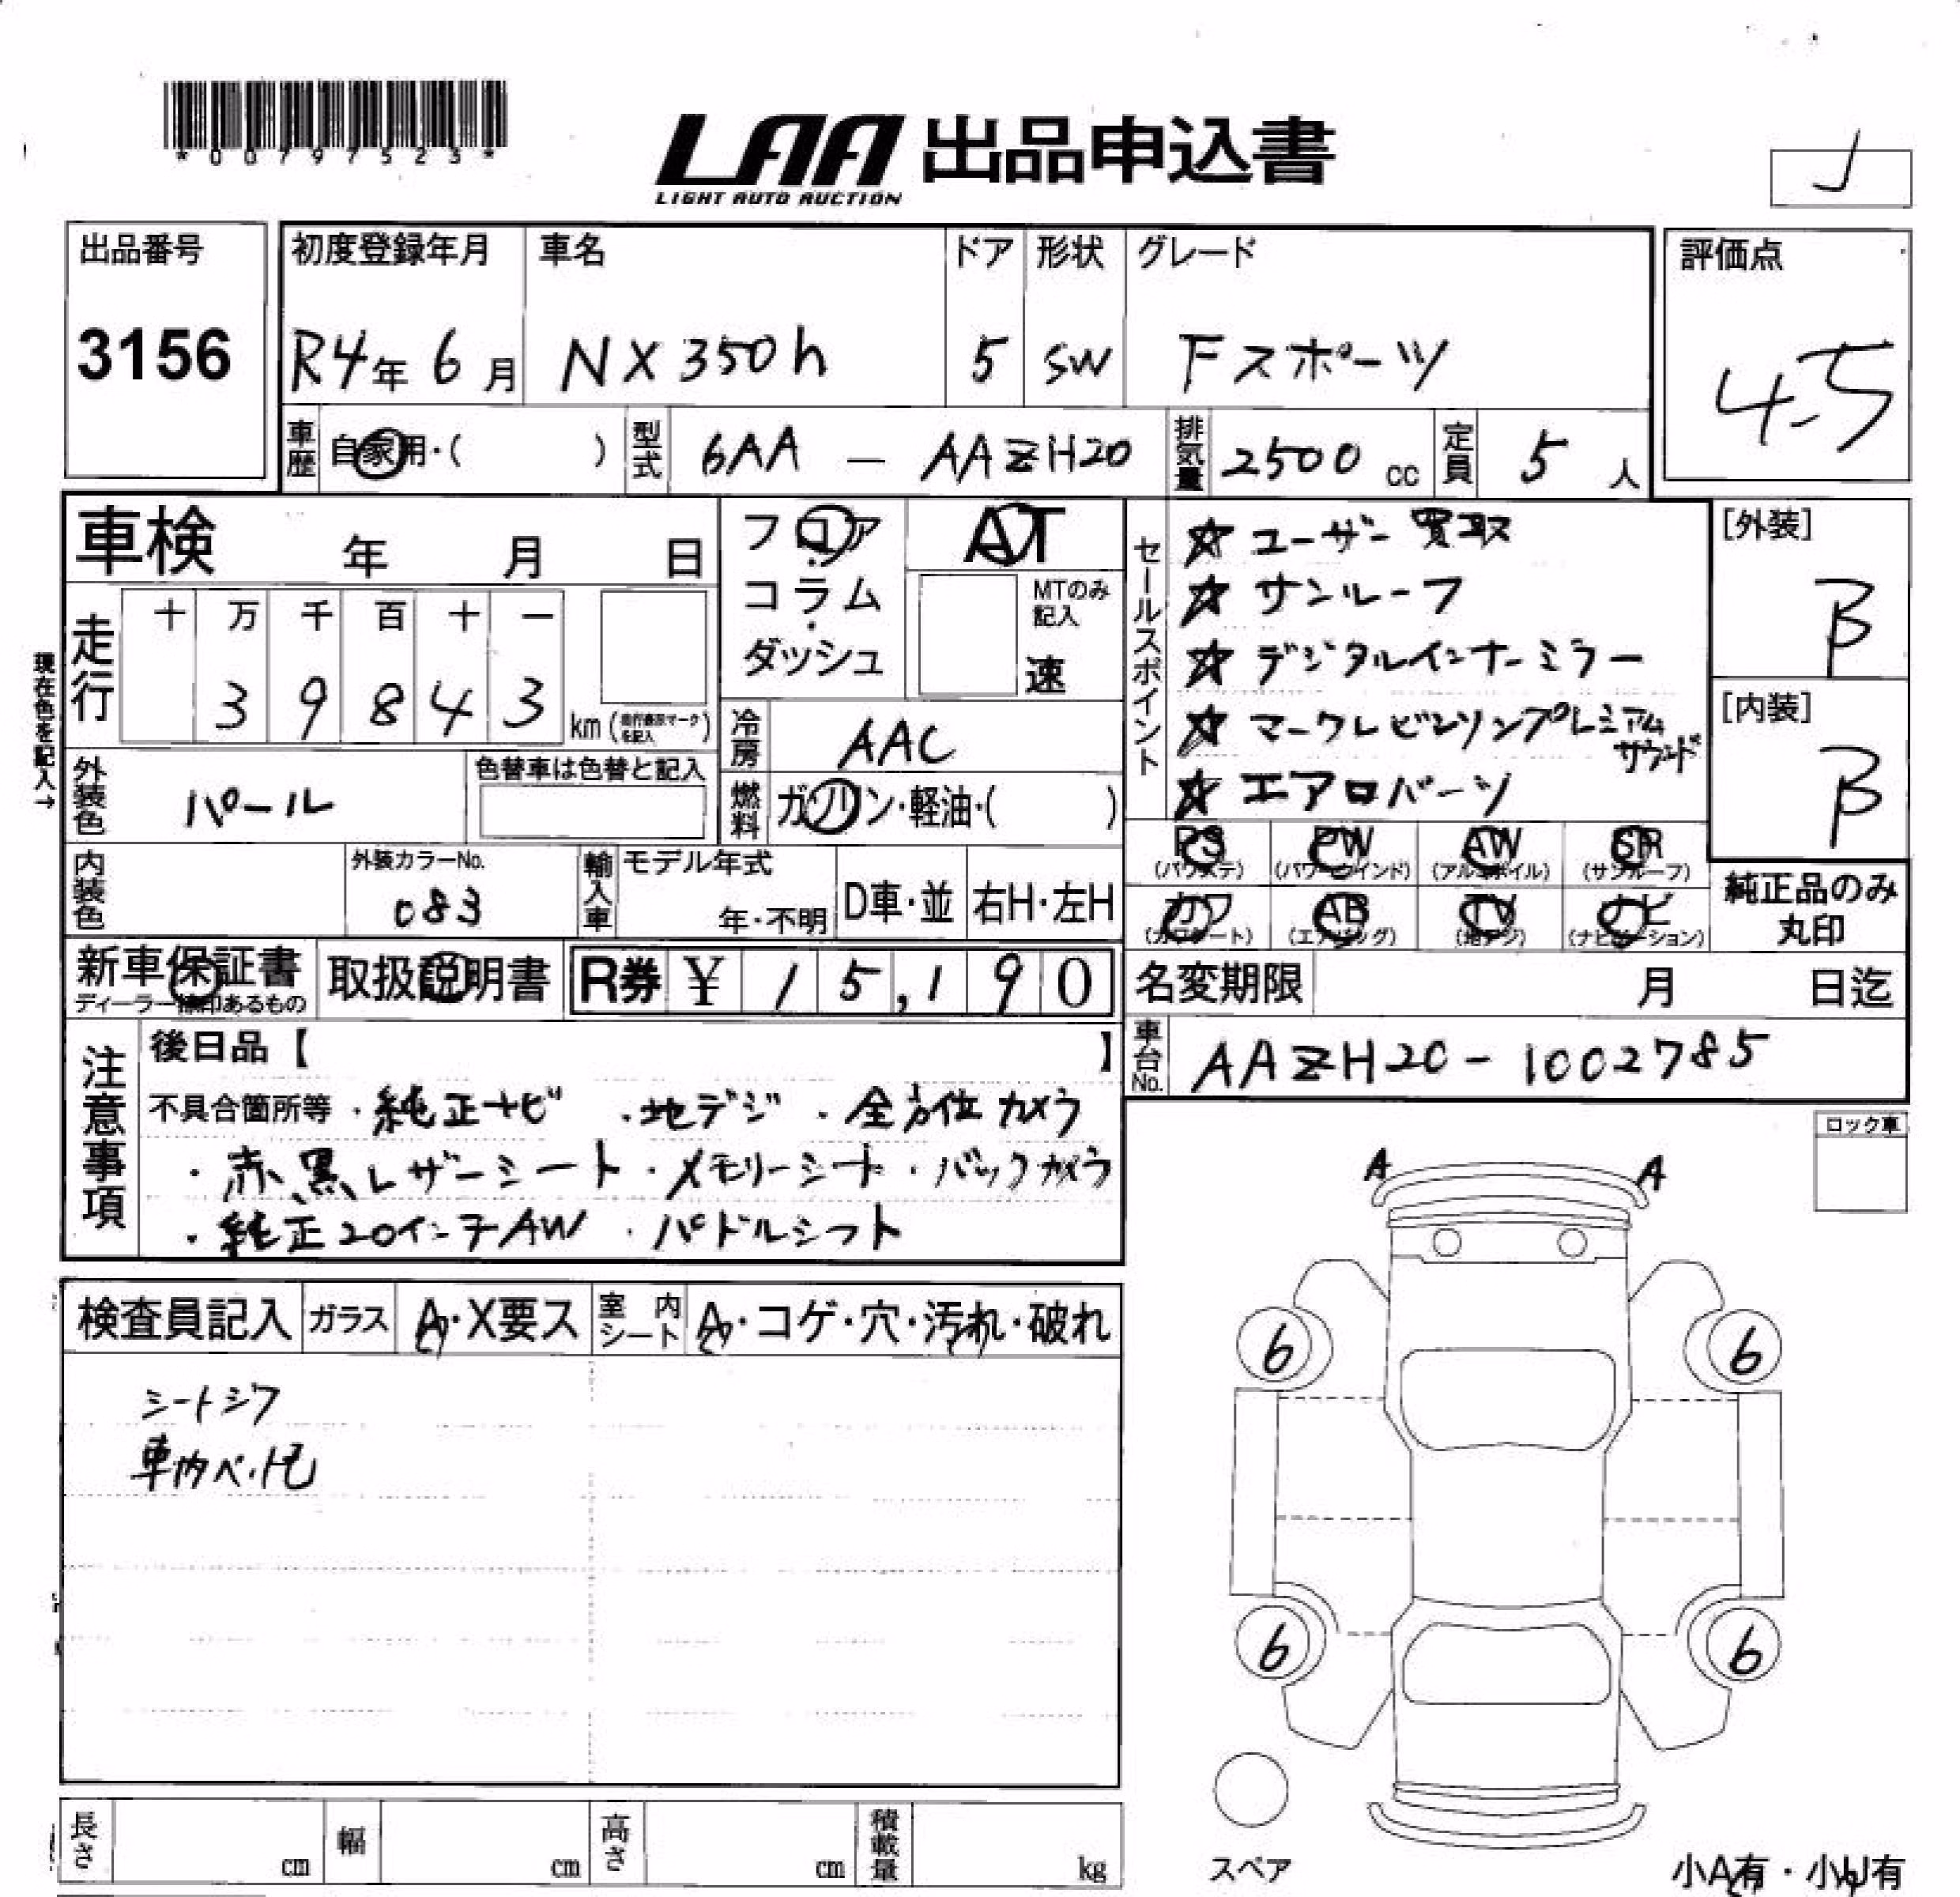 *00797523*
LAA 出品申込書
LIGHT AUTO AUCTION
J
出品番号
3156
初度登録年月
R4年6月
車名
NX350h
ドア
5
形状
SW
グレード
Fスポーツ
評価点
4.5
車歴
自家用・( )
型式
6AA - AAZH20
排気量
2500 cc
定員
5人
車検 年 月 日
フロア
コラム
ダッシュ
AT
MTのみ記入
速
セールスポイント
☆ユーザー買取
☆サンルーフ
☆デジタルインナーミラー
☆マークレビンソンプレミアムサウンド
☆エアロパーツ
[外装]
B
[内装]
B
現在色を記入→
走行
十 万 千 百 十 一
3 9 8 4 3
km(走行表示マークを記入)
冷房
AAC
外装色
パール
色替車は色替と記入
燃料
ガソリン・軽油・( )
PS (パワステ)
PW (パワーウインド)
AW (アルミホイル)
SR (サンルーフ)
カワ (カワシート)
AB (エアバッグ)
TV (地デジ)
ナビ (ナビゲーション)
純正品のみ
丸印
内装色
外装カラーNo.
083
輸入車
モデル年式
年・不明
D車・並
右H・左H
新車保証書
ディーラー捺印あるもの
取扱説明書
R券 ¥ 15,190
名変期限 月 日迄
車台No.
AAZH20-1002785
注意事項
後日品【 】
不具合箇所等 ・純正ナビ ・地デジ ・全方位カメラ
・赤、黒レザーシート ・メモリーシート ・バックカメラ
・純正20インチAW ・パドルシフト
ロック車
A A
検査員記入
ガラス
A・X要ス
室内シート
A・コゲ・穴・汚れ・破れ
シートシワ
車内ペット毛
6 6
6 6
スペア
長さ cm
幅 cm
高さ cm
積載量 kg
小A有・小U有